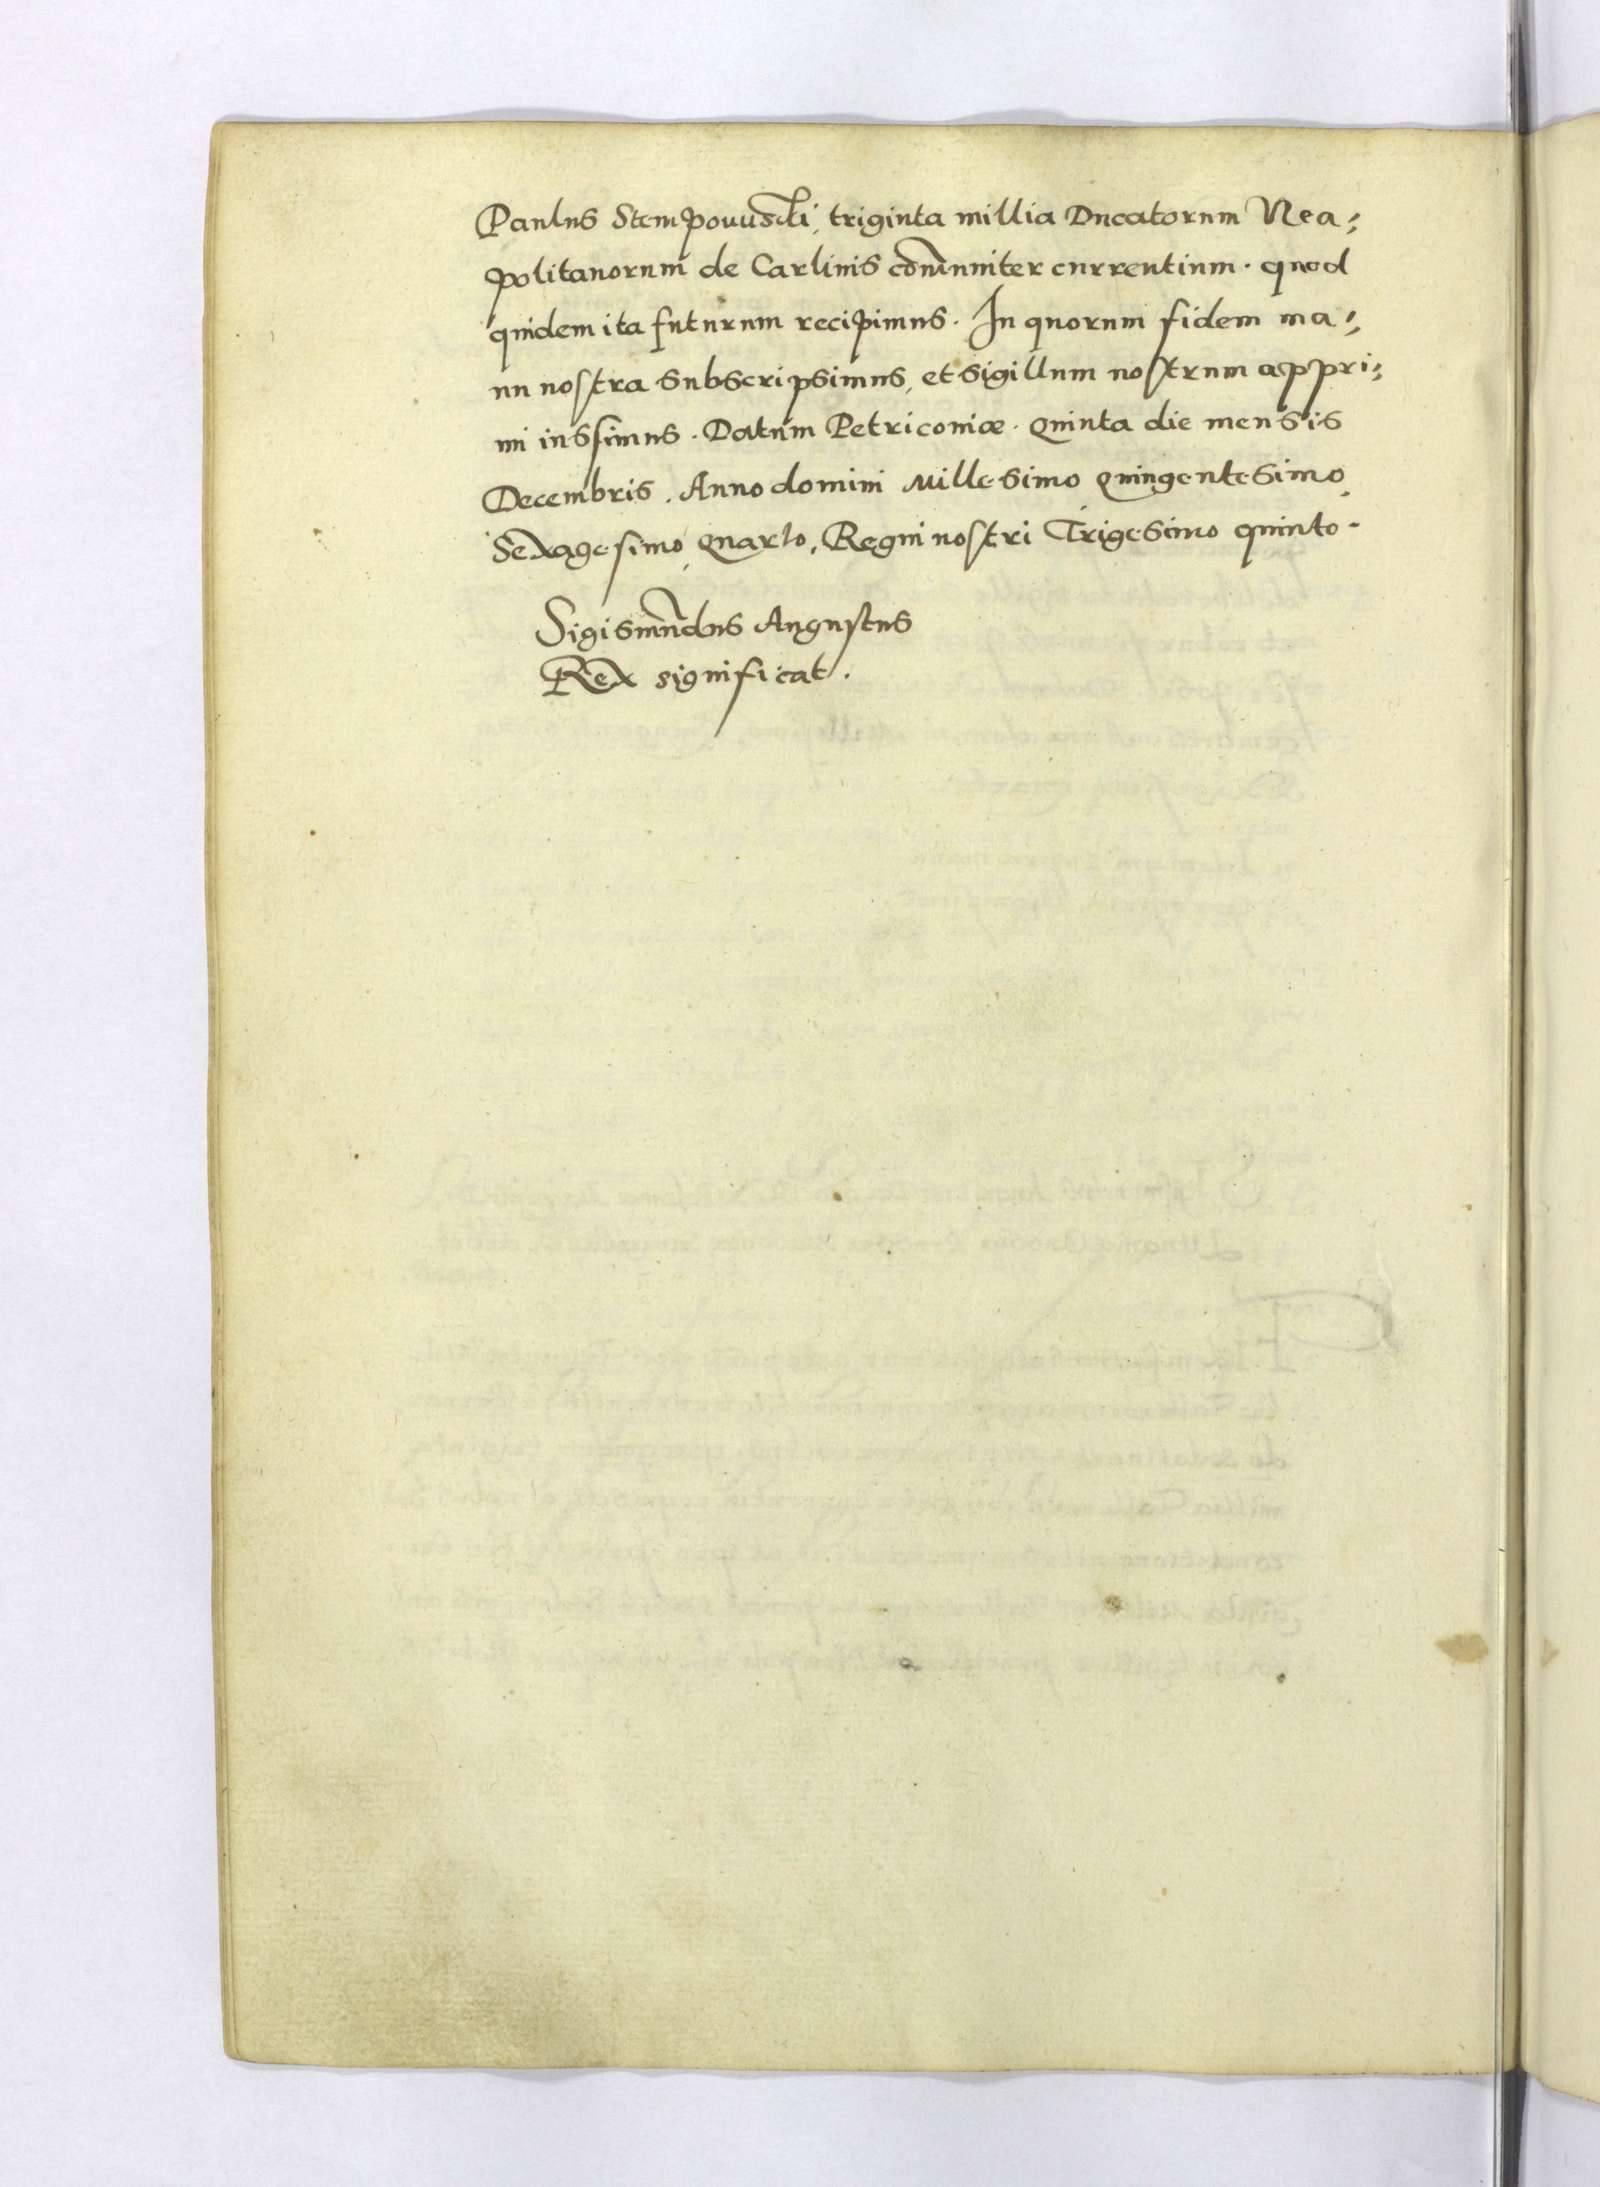 Paulus Stempovuski, triginta millia Ducatorum Nea⸗
politanorum de Carlinis com̃uniter currentium. quod
quidem ita futurum recipimus. In quorum fidem ma⸗
nu nostra subscripsimus, et sigillum nostrum appri⸗
mi iussimus. Datum Petricouiæ. Quinta die mensis
Decembris. Anno domini Millesimo Quingentesimo
Sexagesimo, Quarto, Regni nostri Trigesimo quinto.
Sigismũdus Augustus
Rex significat.